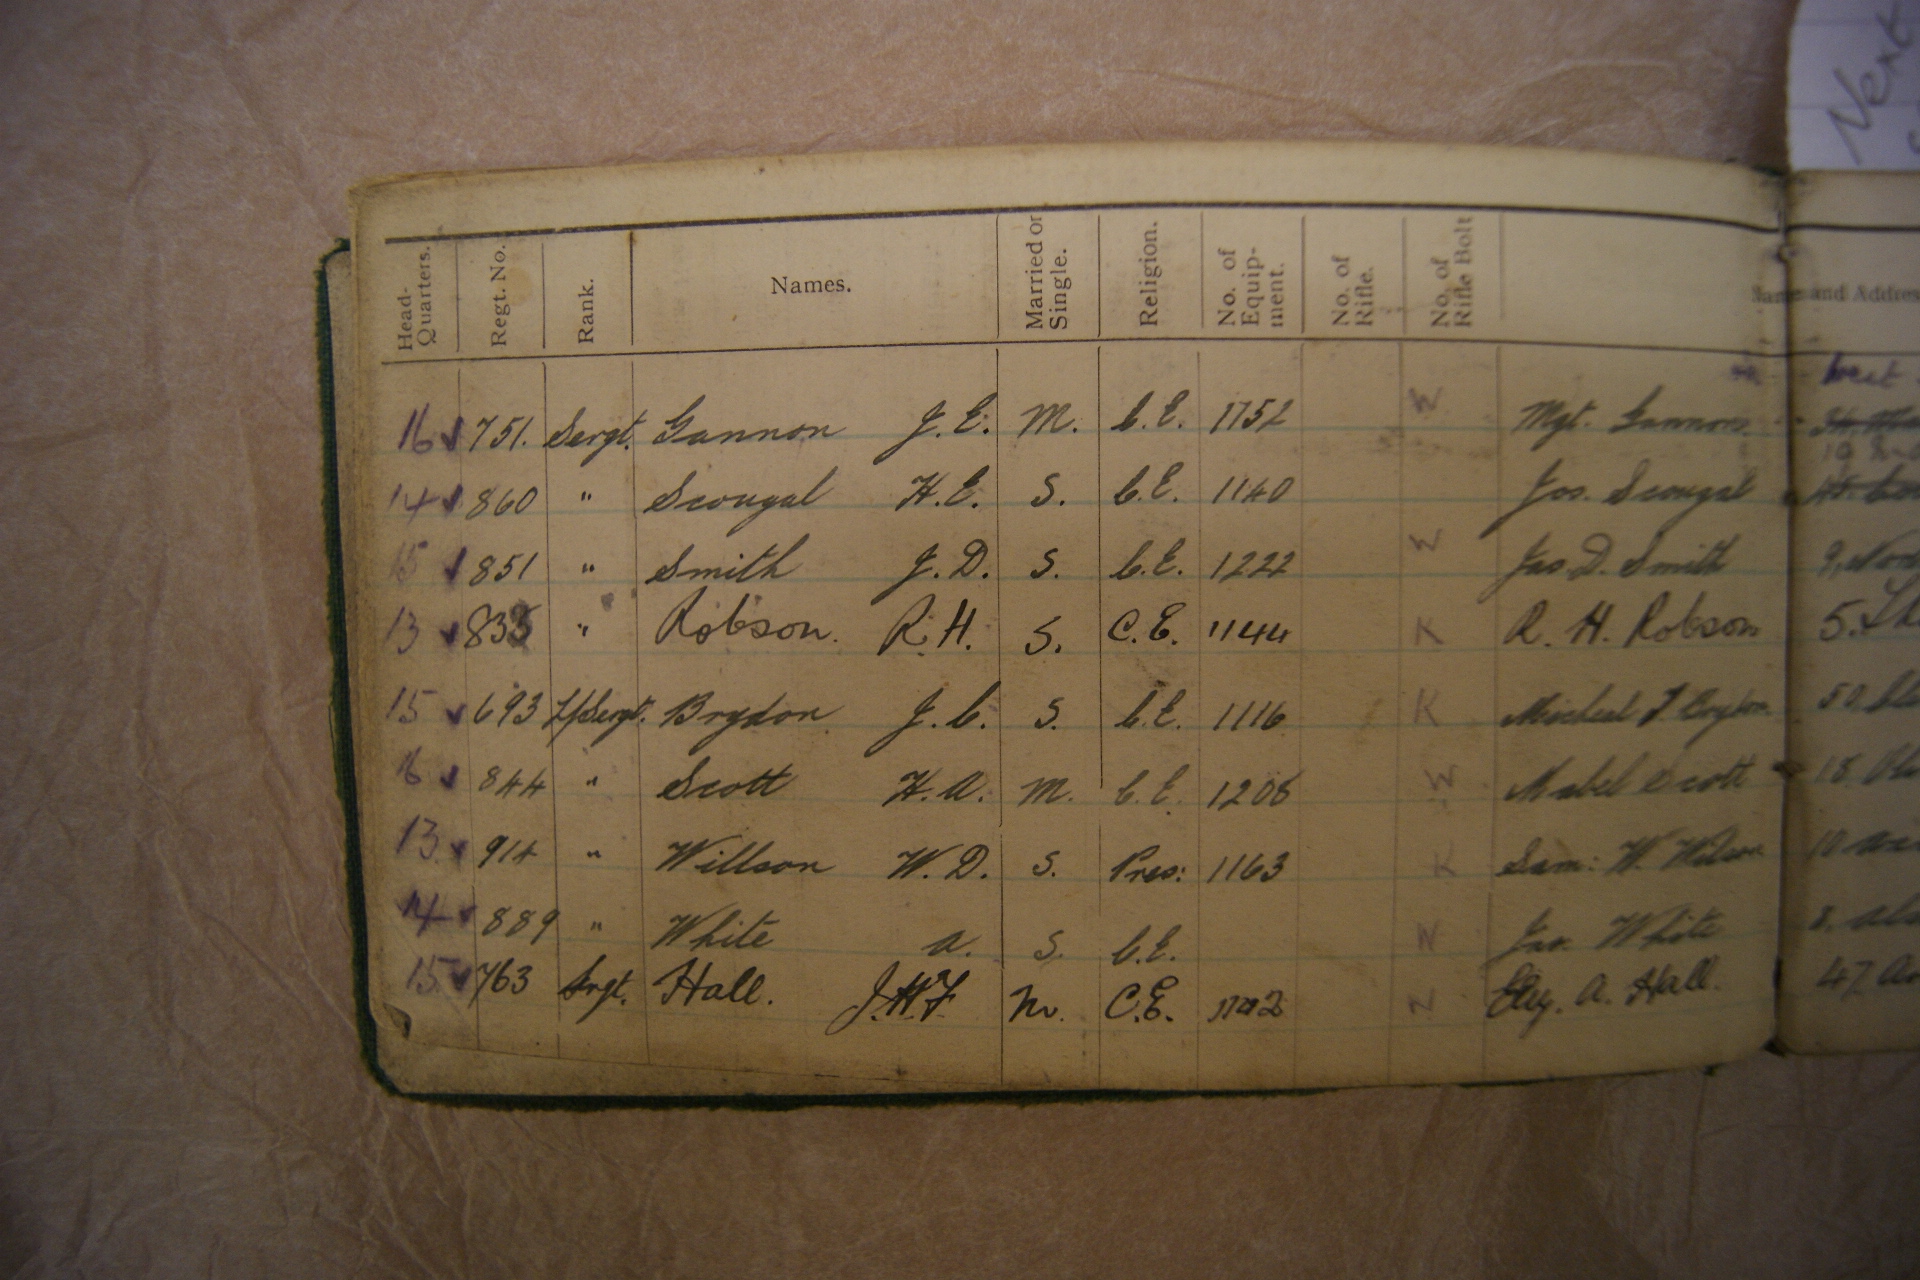 Next
Head-Quarters. Regt. No. Rank. Names. Married or Single. Religion. No. of Equip-ment. No. of Rifle. No. of Rifle Bolt Name and Addres
West
16 751. Sergt. Gannon J. E. M. C.E. 1752 W Mgt. Gannon
14 860 " Scougal H. E. S. C.E. 1140 Jas. Scougal
15 851 " Smith J. D. S. C.E. 1222 W Jas. D. Smith 9, Nor
13 833 " Robson. R. H. S. C.E. 1144 K R. H. Robson 5.
15 693 L/Sergt. Brydon J. C. S. C.E. 1116 K Micheal Brydon 50
16 844 " Scott H. A. M. C.E. 1206 W Mabel Scott 18
13 914 " Willson W. D. S. Pres: 1163 K Sam: W. Wilson 10
14 889 " White A. S. C.E. N Jas. White 8.
15 763 Srgt. Hall. J.H.F. M. C.E. N Eliz. A. Hall. 47